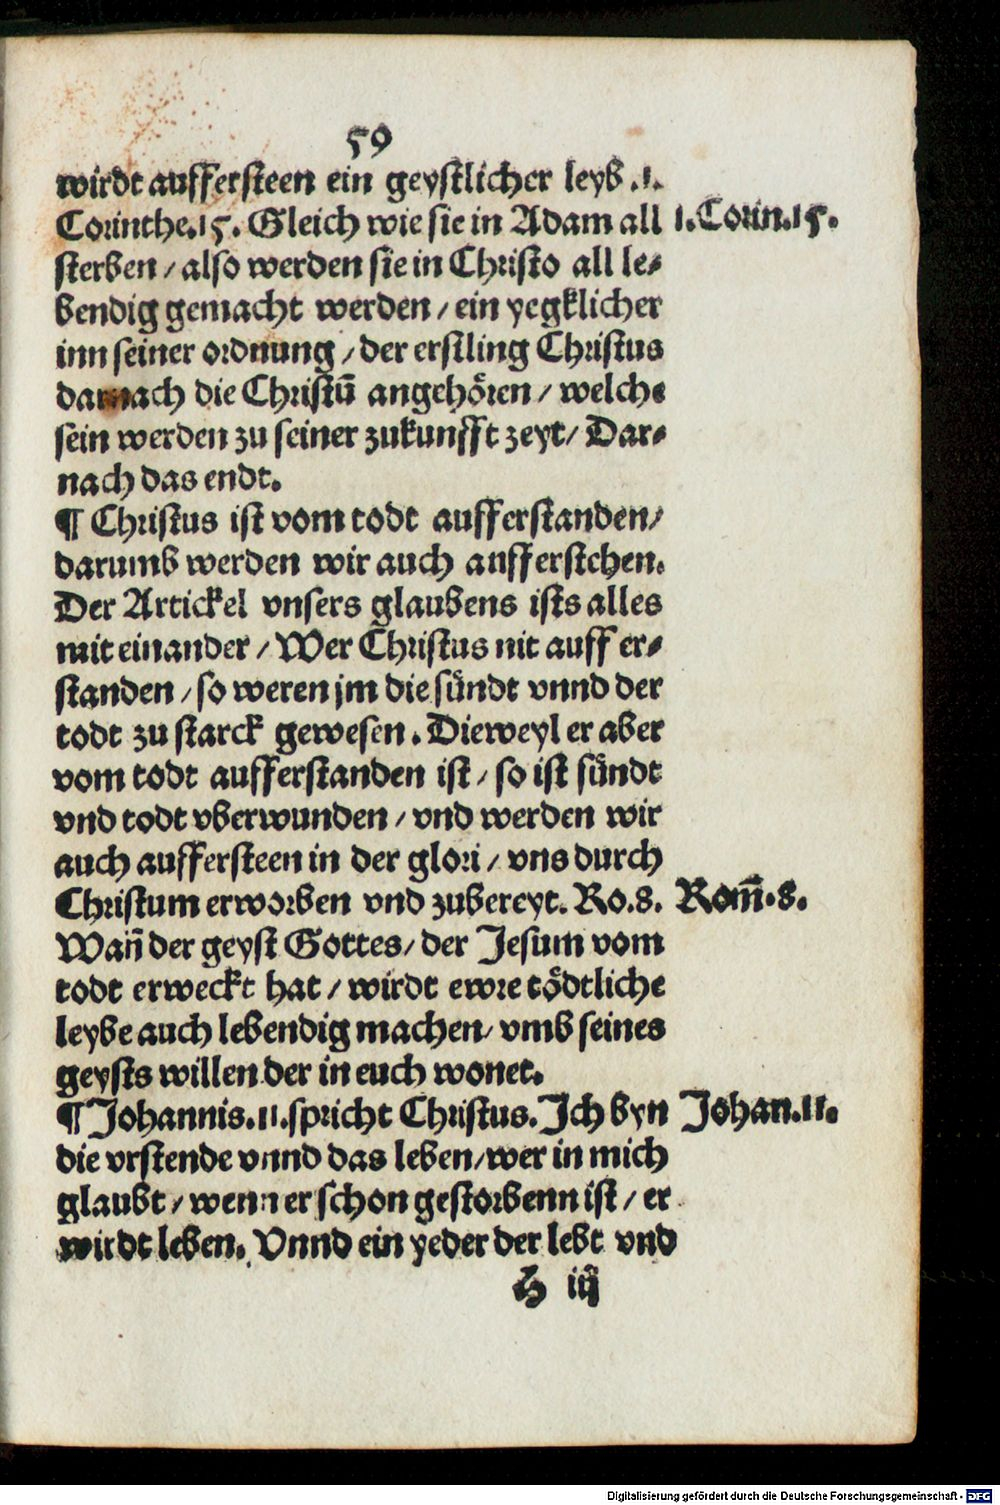 59
wirdt aufferſteen ein geyſtlicher leyb .1.
Corinthe.15. Gleich wie ſie in Adam all
1.Corin.15.
ſterben / alſo werden ſie in Chriſto all le⸗
bendig gemacht werden / ein yegklicher
inn ſeiner ordnung / der erſtling Chriſtus
darnach die Chriſtū angehören / welche
ſein werden zu ſeiner zukunfft zeyt / Dar⸗
nach das endt.
¶ Chriſtus iſt vom todt aufferſtanden /
darumb werden wir auch aufferſtehen.
Der Artickel vnſers glaubens iſts alles
mit einander / Wer Chriſtus nit auff er⸗
ſtanden / ſo weren jm die ſündt vnnd der
todt zu ſtarck geweſen . Dieweyl er aber
vom todt aufferſtanden iſt / ſo iſt ſündt
vnd todt vberwunden / vnd werden wir
auch aufferſteen in der glori / vns durch
Chriſtum erworben vnd zubereyt. Ro.8.
Rom̄.8.
Wañ der geyſt Gottes / der Jeſum vom
todt erweckt hat / wirdt ewre tödtliche
leybe auch lebendig machen / vmb ſeines
geyſts willen der in euch wonet.
¶ Johannis.11.ſpricht Chriſtus. Ich byn
Johan.11.
die vrſtende vnnd das leben / wer in mich
glaubt / wenn er ſchon geſtorbenn iſt / er
wirdt leben. Vnnd ein yeder der lebt vnd
H iij
Digitalisierung gefördert durch die Deutsche Forschungsgemeinschaft - DFG